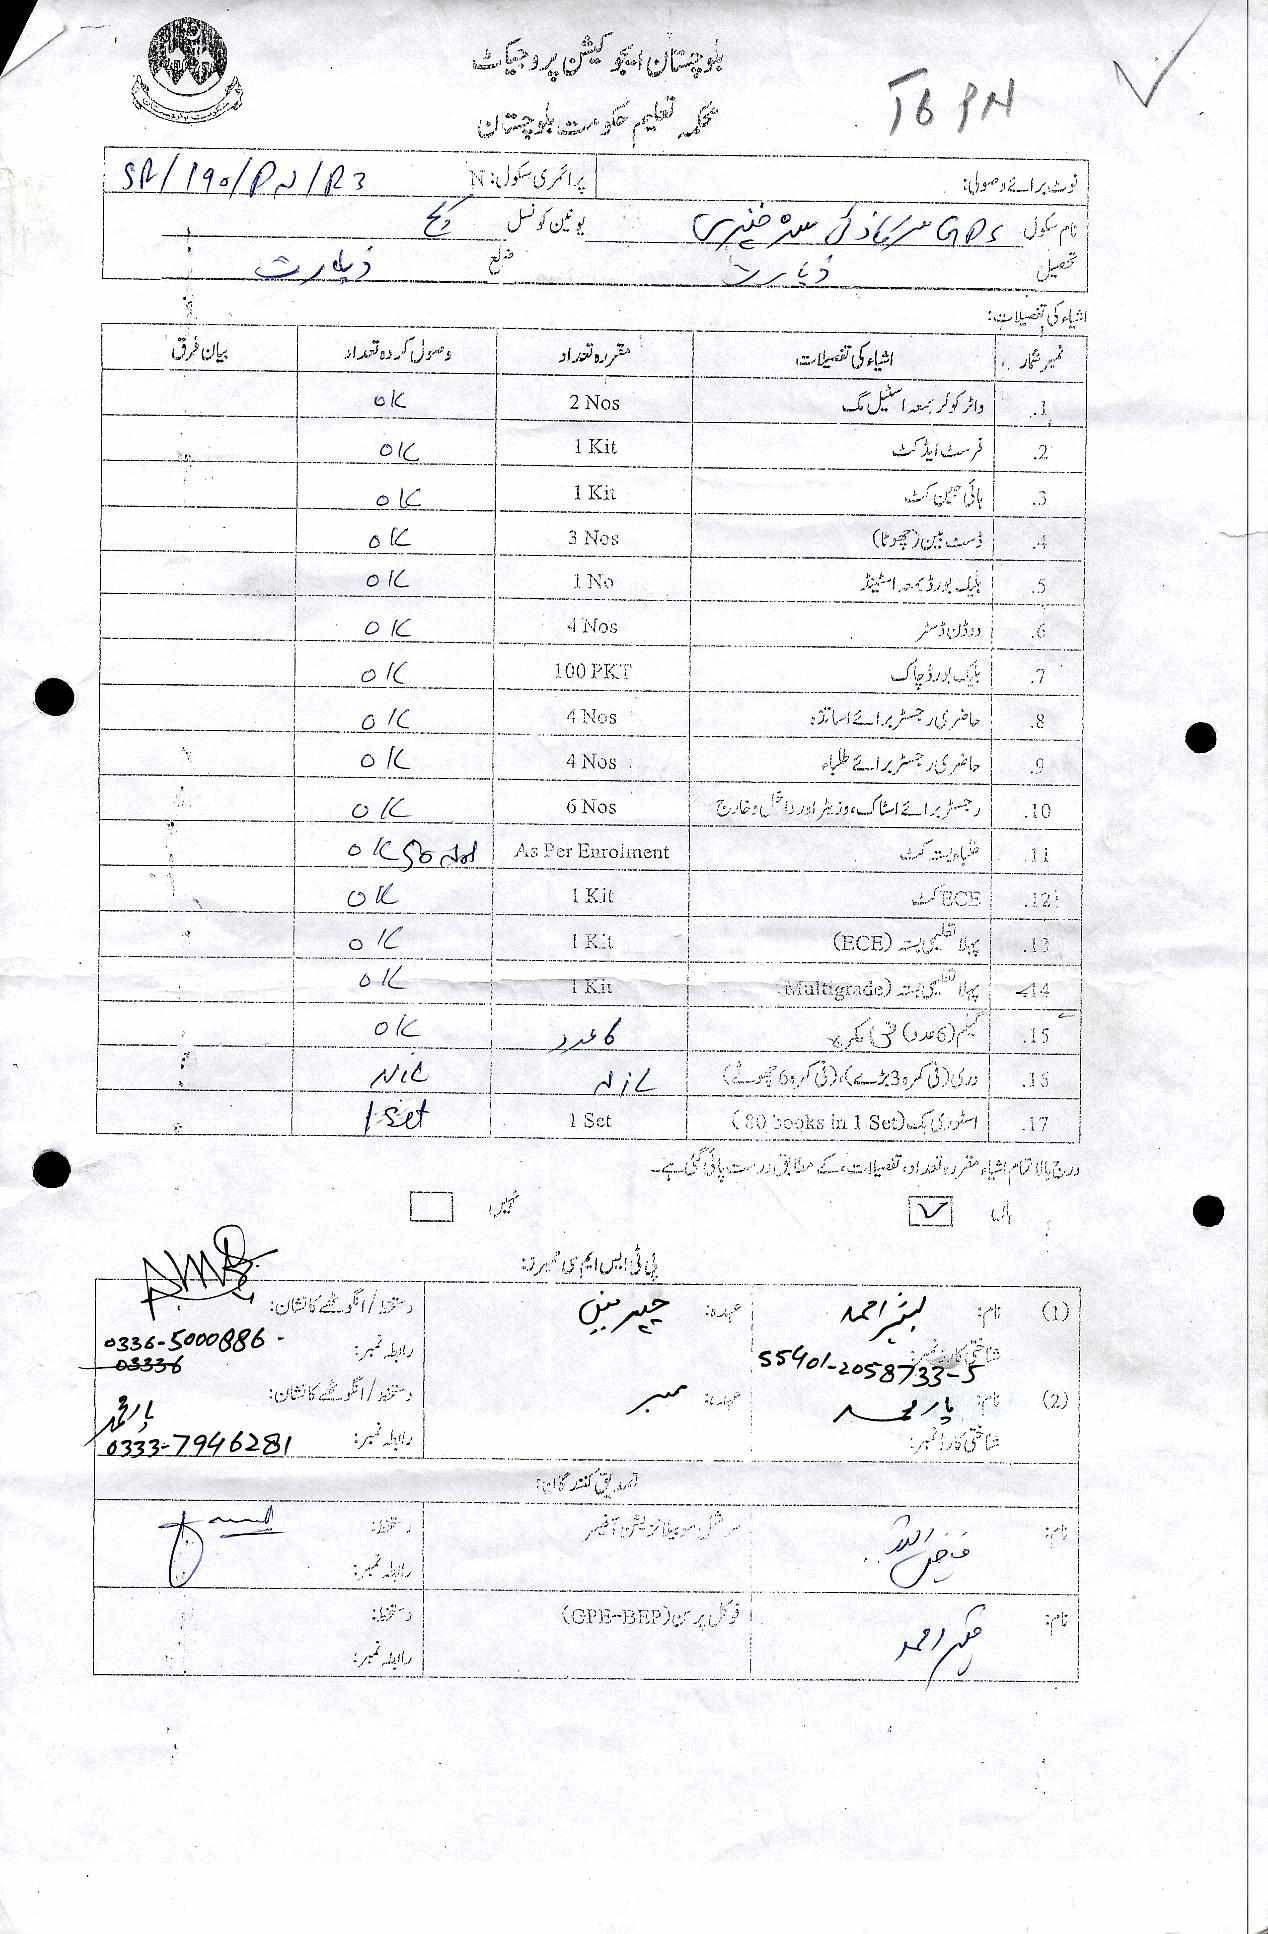 بلوچستان ایجوکیشن پروجیکٹ
محکمہ تعلیم حکومت بلوچستان
نوٹ برائے وصولی: پرائمری سکول: N SR/190/PN/R3
نام سکول GPS یونین کونسل
تحصیل زیارت ضلع زیارت
اشیاء کی تفصیلات:
نمبر شمار اشیاء کی تفصیلات مقررہ تعداد وصول کردہ تعداد بیان فرق
1. واٹر کولر بمعہ اسٹیل مگ 2 Nos OK
2. فرسٹ ایڈ کٹ 1 Kit OK
3. ہائی جین کٹ 1 Kit OK
4. ڈسٹ بین (چھوٹا) 3 Nos OK
5. بلیک بورڈ بمعہ اسٹینڈ 1 No OK
6. ووڈن ڈسٹر 4 Nos OK
7. بلیک بورڈ چاک 100 PKT OK
8. حاضری رجسٹر برائے اساتذہ 4 Nos OK
9. حاضری رجسٹر برائے طلباء 4 Nos OK
10. رجسٹر برائے اسٹاک، وزیٹر اور داخل و خارج 6 Nos OK
11. کٹ As Per Enrolment OK 50
12. ECE کٹ 1 Kit OK
13. پہلا تعلیمی بستہ (ECE) 1 Kit OK
14. پہلا تعلیمی بستہ (Multigrade 1 Kit OK
15. (6 عدد) 6 عدد OK
16. دری (فی کمرہ 3 بڑے)، (فی کمرہ 6 چھوٹے)
17. اسٹوری بک (80 books in 1 Set) 1 Set 1 Set
درج بالا تمام اشیاء مقررہ تعداد، تفصیلات، کے مطابق درست پائی گئی ہے۔
ہاں ✓ نہیں
پی ٹی ایس ایم سی ممبرز:
(1) نام: بشیر احمد عہدہ: چیرمین دستخط / انگوٹھے کا نشان:
شناختی کارڈ نمبر: 55401-2058733-5 رابطہ نمبر: 0336-5000886
03336
(2) نام: یار محمد عہدہ: ممبر دستخط / انگوٹھے کا نشان: یار محمد
شناختی کارڈ نمبر: رابطہ نمبر: 0333-7946281
تصدیق کنندگان:
نام: فیض اللہ سوشل موبیلائزیشن آفیسر دستخط:
رابطہ نمبر:
نام: فوکل پرسن (GPE-BEP) دستخط:
رابطہ نمبر: